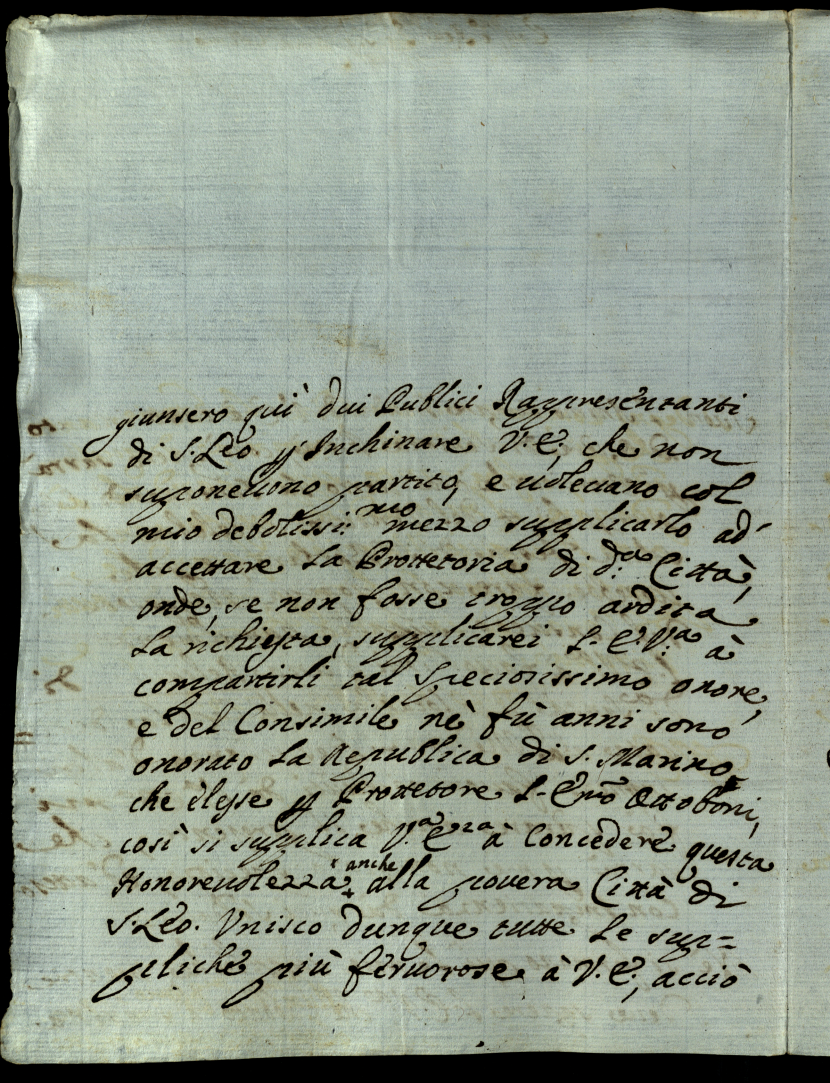 giunsero quì dui Publici Rappresentanti
di S. Leo p Inchinare V. E., che non
suponeuono partito, e uoleuano col
mio debolissi:mo mezzo supplicarlo ad
accettare la Prottetoria di d.a Città,
onde, se non fosse troppo ardita
la richiesta, supplicarei l'E. V.a à
compartirli tal speciosissimo onore,
e del Consimile nè fù anni sono
onorato la Republica di S. Marino,
che elesse p Prottetore l'Emo Ottoboni,
così si supplica V.a E.za à Concedere questa
Honoreuolezza anche alla pouera Città di
S. Leo. Vnisco dunque tutte le sup=
pliche più feruorose à V. E., acciò